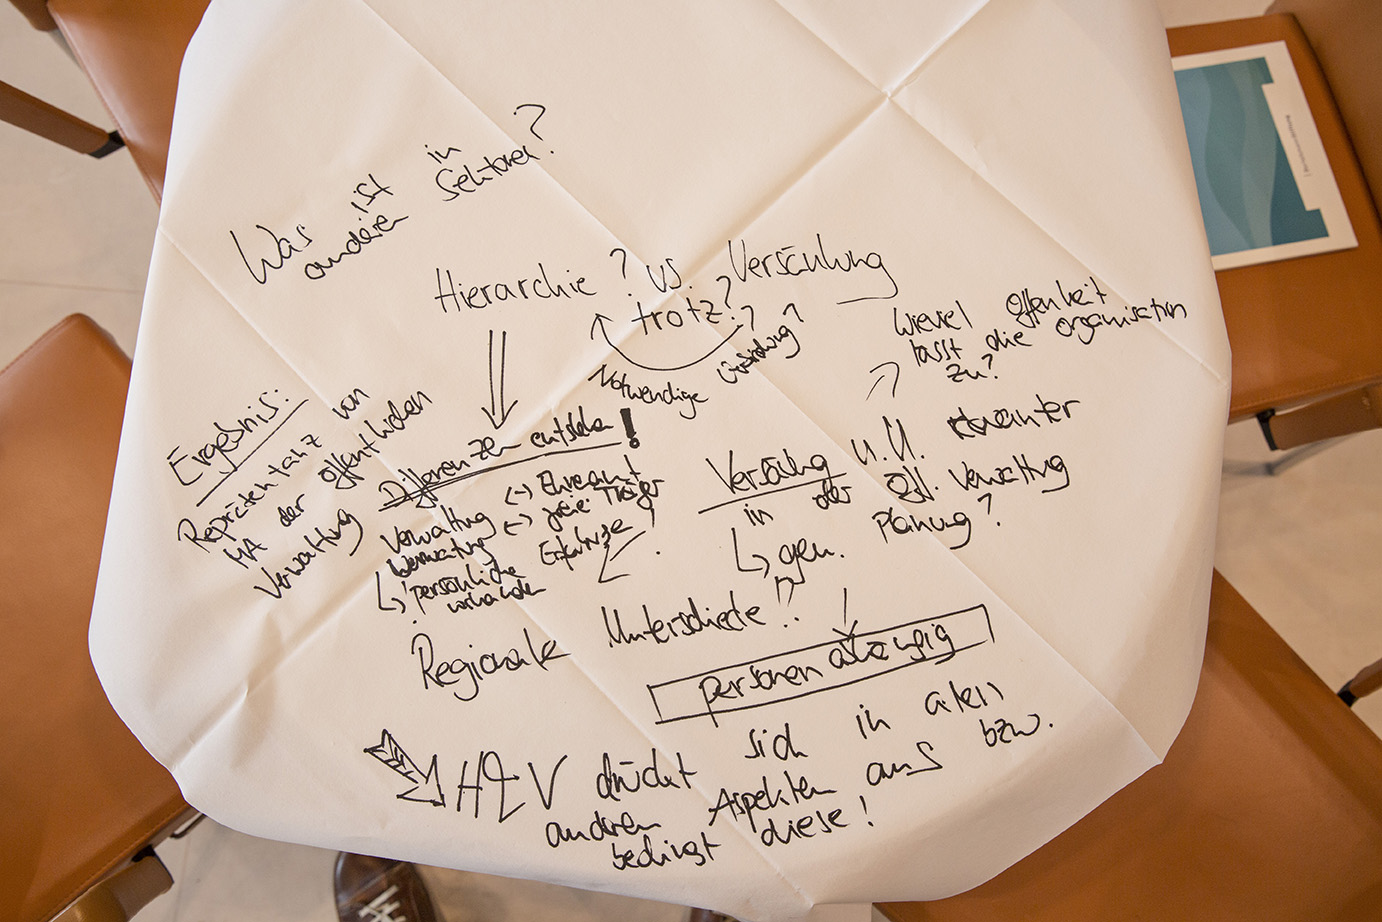 Was ist in
anderen Sektoren?
Hierarchie ? vs. ? Versäulung
trotz?
Notwendige
Wieviel Offenheit
lässt die Organisation
zu?
Ergebnis:
Repräsentanz von
MA der öffentlichen
Verwaltung
Differenzen entstehen !
Verwaltung <-> Ehrenamt
Verwaltung <-> freie Träger
↳ persönliche
vorhanden
Versäulung u.U.
in der öff. Verwaltung
↳ gem. Planung?
Regionale Unterschiede !!
personenabhängig
H&V drückt sich in allen
anderen Aspekten aus bzw.
bedingt diese!